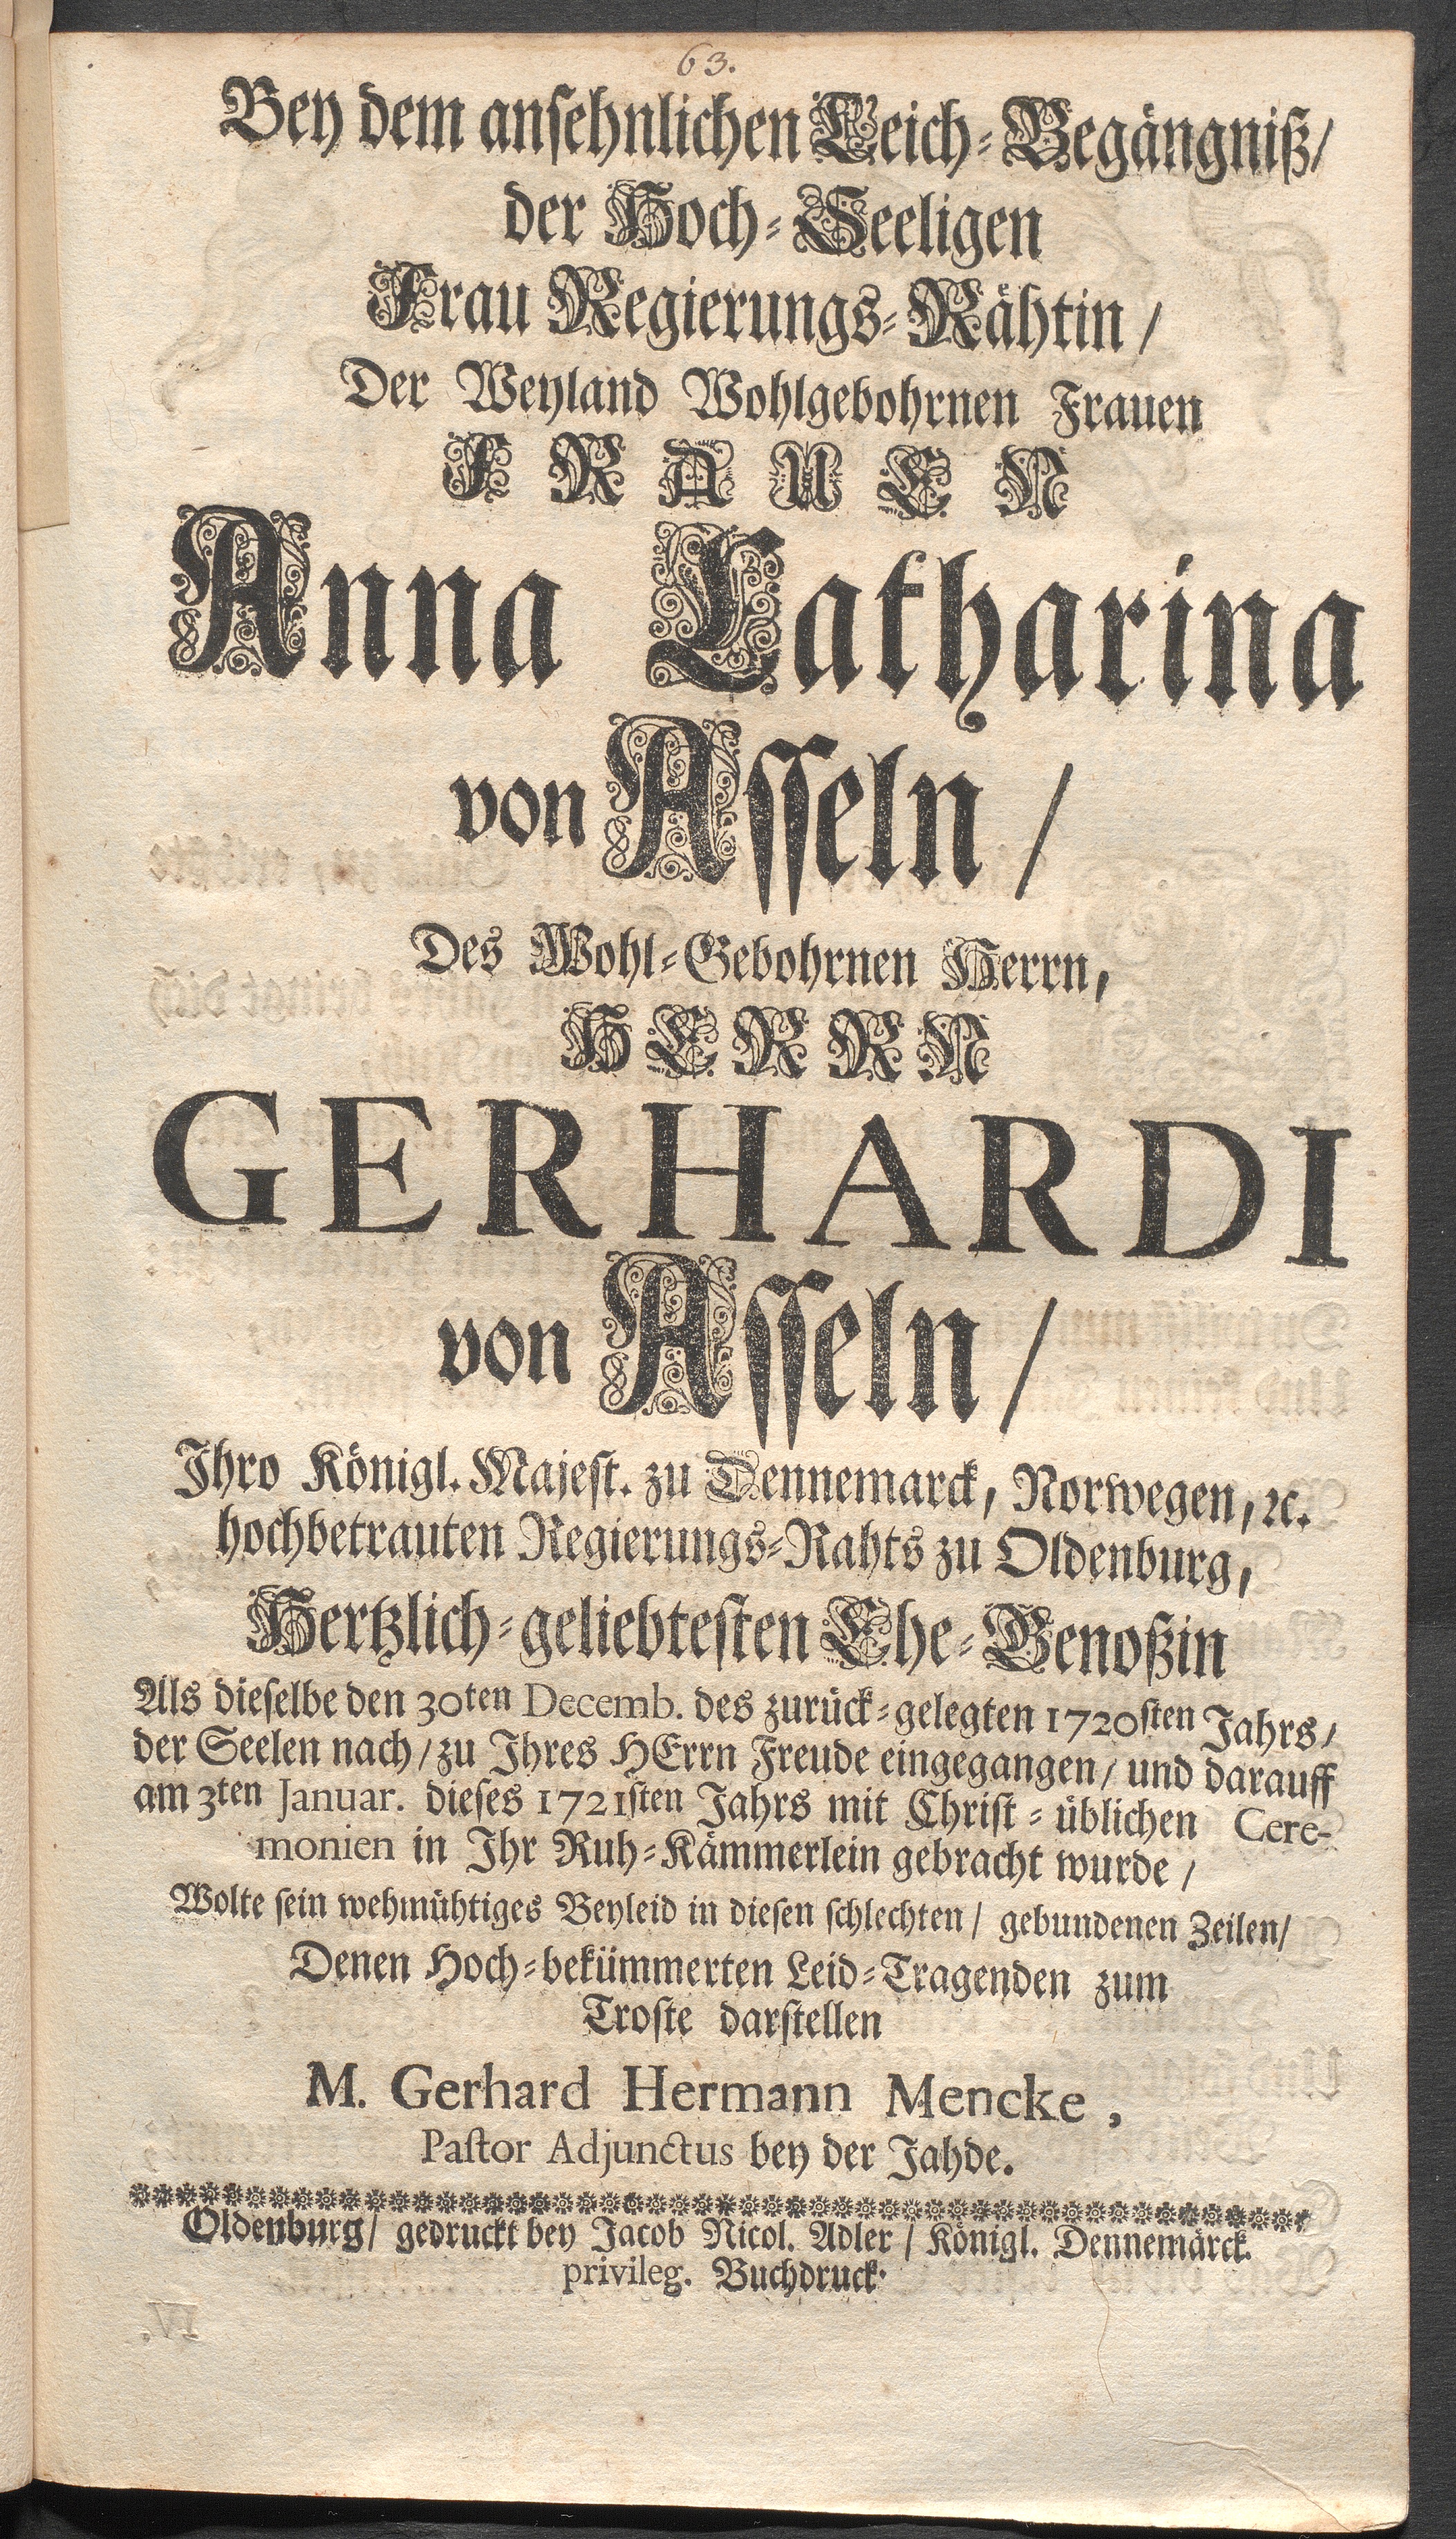 63.
Bey dem ansehnlichen Leich-Begängniß/
der Hoch-Seeligen
Frau Regierungs-Rähtin/
Der Weyland Wohlgebohrnen Frauen
FRAUEN
Anna Catharina
von Asseln/
Des Wohl-Gebohrnen Herrn,
HERRN
GERHARDI
von Asseln/
Ihro Königl. Majest. zu Dennemarck, Norwegen, ꝛc.
hochbetrauten Regierungs-Rahts zu Oldenburg,
Hertzlich-geliebtesten Ehe-Genoßin
Als dieselbe den 30ten Decemb. des zurück-gelegten 1720sten Jahrs/
der Seelen nach/ zu Ihres HErrn Freude eingegangen/ und darauff
am 3ten Januar. dieses 1721sten Jahrs mit Christ-üblichen Cere-
monien in Ihr Ruh-Kämmerlein gebracht wurde/
Wolte sein wehmühtiges Beyleid in diesen schlechten/ gebundenen Zeilen/
Denen Hoch-bekümmerten Leid-Tragenden zum
Troste darstellen
M. Gerhard Hermann Mencke,
Pastor Adjunctus bey der Jahde.
Oldenburg/ gedruckt bey Jacob Nicol. Adler/ Königl. Dennemärck.
privileg. Buchdruck.